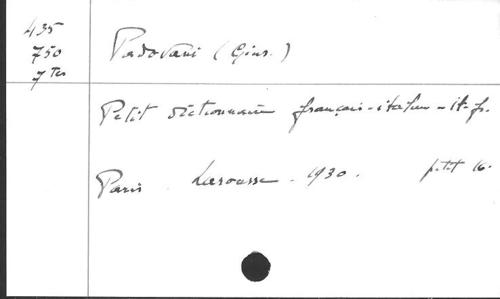 435
750
7 Tes
Padovani (Gius.)
Petit dictionnaire français-italien - it-fr.
Paris. Larousse - 1930. petit 16.